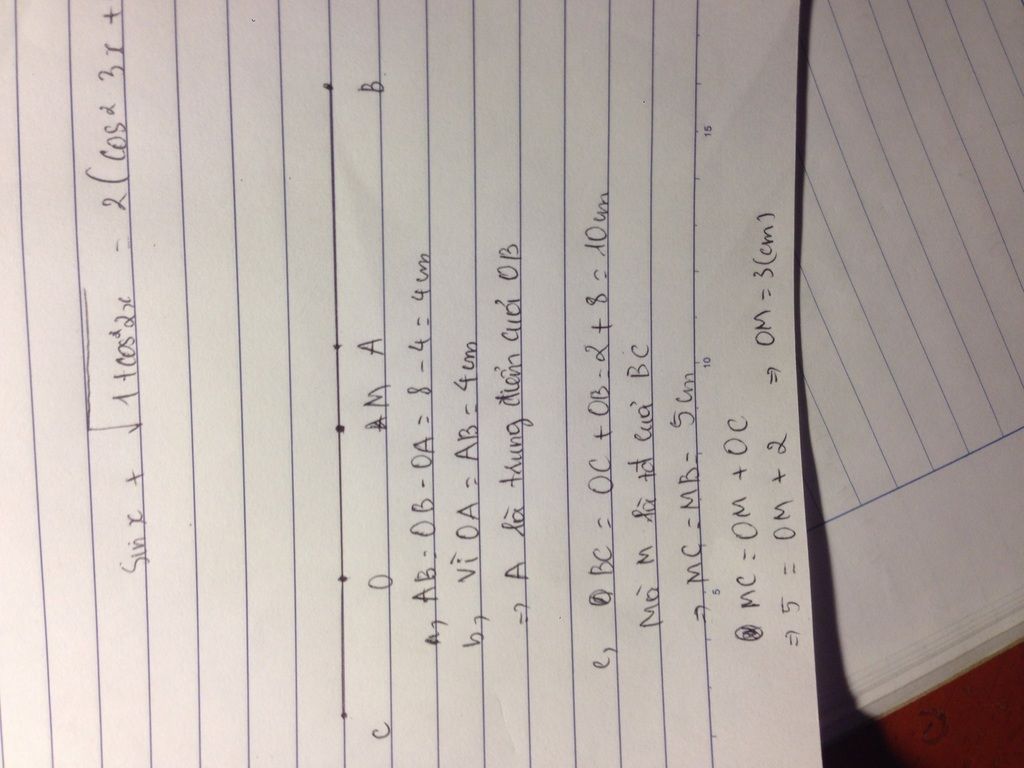 Sin x + √1+cos²2x = 2(cos² 3x +
C O M A B
a, AB = OB - OA = 8 - 4 = 4cm
b, Vì OA = AB = 4cm
=> A là trung điểm của OB
c, BC = OC + OB = 2 + 8 = 10cm
Mà M là tđ của BC
=> MC = MB = 5cm
5 10 15
MC = OM + OC
=> 5 = OM + 2 => OM = 3(cm)